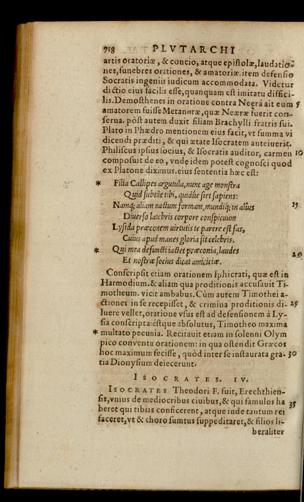 718 PLVTARCHI
artis oratoriæ, & concio, atque epistolæ, laudatio
nes, funebres orationes, & amatoriæ. item defensio
Socratis ingenii iudicum accommodata. Videtur
dictio eius facilis esse, quanquam est imitatu difficilis. Demosthenes in oratione contra ait eum 5
amatorem fuisse Metaneiræ, quæ fuerit con-
serua. post autem duxit filiam Brachylli fratris sui.
Plato in Phædro mentionem eius facit, vt summa vi
dicendi præditi, & qui ætate Isocratem anteiuerit.
Philiscus ipsius socius, & Isocratis auditor, carmen 10
composuit de eo, vnde idem potest cognosci quod
ex Platone diximus. eius sententia hæc est:
* Filia Callipes argutula, nunc age monstra
Quid subtile tibi, quidue siet sapiens:
Namque alium nactum formam, mundisque in aliis 15
Diuersa latebris corpore conspicuon
Lysida præconem virtutis te parere est fas,
Cuius apud manes gloria sit celebris.
* Qui mea defuncti iactet præconia, laudes
Et nostræ socius dicat amicitiæ. 20
Conscripsit etiam orationem Iphicrati, quæ est in
Harmodium. & aliam qua proditionis accusauit Ti-
motheum. vicit ambabus. Cùm autem Timothei a-
ctiones in se recepisset, & crimina proditionis di- 25
luere vellet, oratione vsus est ad defensionem à Ly-
sia conscripta: estque absolutus, Timotheo maxima
* multato pecunia. Recitauit etiam in solenni Olym
pico conventu orationem: in qua ostendit Græcos
hoc maximum fecisse, quod inter se instaurata gra- 30
tia Dionysium deiecerunt.
ISOCRATES. IV.
ISOCRATES Theodori F. fuit, Erechthien-
sis, vnius de mediocribus ciuibus, & qui famulos ha
beret qui tibias conficerent, atque inde tantum rei 35
faceret, vt & choro sumtus suppeditaret, & filios li-
beraliter